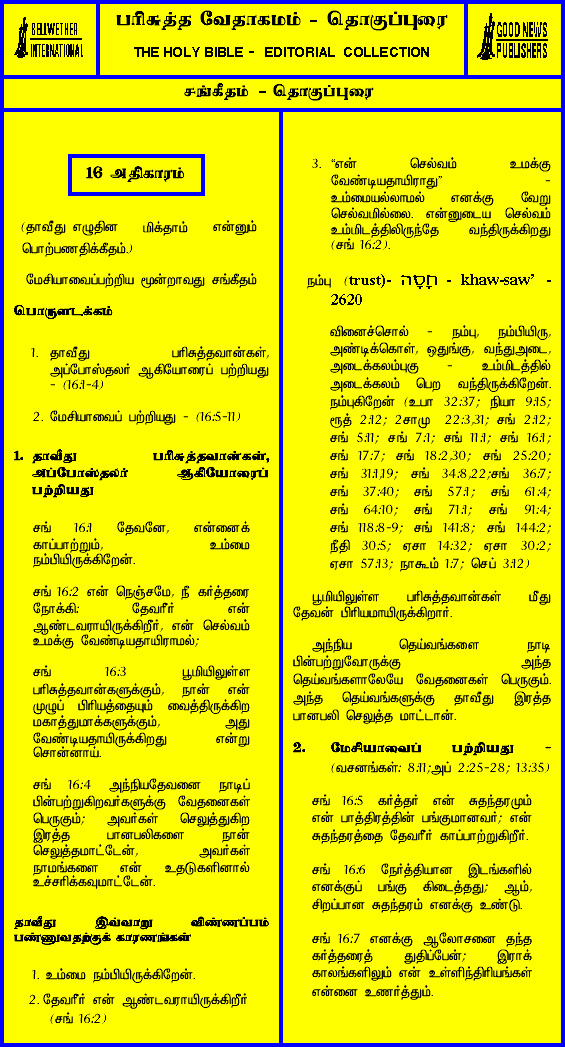 BELLWETHER
INTERNATIONAL
பரிசுத்த வேதாகமம் - தொகுப்புரை
THE HOLY BIBLE - EDITORIAL COLLECTION
GOOD NEWS
PUBLISHERS
சங்கீதம் - தொகுப்புரை
16 அதிகாரம்
(தாவீது எழுதின மிக்தாம் என்னும்
பொற்பணதிக்கீதம்.)
மேசியாவைப்பற்றிய மூன்றாவது சங்கீதம்
பொருளடக்கம்
1. தாவீது பரிசுத்தவான்கள்,
அப்போஸ்தலர் ஆகியோரைப் பற்றியது
- (16:1-4)
2. மேசியாவைப் பற்றியது - (16:5-11)
1. தாவீது பரிசுத்தவான்கள்,
அப்போஸ்தலர் ஆகியோரைப்
பற்றியது
சங் 16:1 தேவனே, என்னைக்
காப்பாற்றும், உம்மை
நம்பியிருக்கிறேன்.
சங் 16:2 என் நெஞ்சமே, நீ கர்த்தரை
நோக்கி: தேவரீர் என்
ஆண்டவராயிருக்கிறீர், என் செல்வம்
உமக்கு வேண்டியதாயிராமல்;
சங் 16:3 பூமியிலுள்ள
பரிசுத்தவான்களுக்கும், நான் என்
முழுப் பிரியத்தையும் வைத்திருக்கிற
மகாத்துமாக்களுக்கும், அது
வேண்டியதாயிருக்கிறது என்று
சொன்னாய்.
சங் 16:4 அந்நியதேவனை நாடிப்
பின்பற்றுகிறவர்களுக்கு வேதனைகள்
பெருகும்; அவர்கள் செலுத்துகிற
இரத்த பானபலிகளை நான்
செலுத்தமாட்டேன், அவர்கள்
நாமங்களை என் உதடுகளினால்
உச்சரிக்கவுமாட்டேன்.
தாவீது இவ்வாறு விண்ணப்பம்
பண்ணுவதற்குக் காரணங்கள்
1. உம்மை நம்பியிருக்கிறேன்.
2. தேவரீர் என் ஆண்டவராயிருக்கிறீர்
(சங் 16:2)
3. "என் செல்வம் உமக்கு
வேண்டியதாயிராது" -
உம்மையல்லாமல் எனக்கு வேறு
செல்வமில்லை. என்னுடைய செல்வம்
உம்மிடத்திலிருந்தே வந்திருக்கிறது
(சங் 16:2).
நம்பு (trust)- חָסָה - khaw-saw' -
2620
வினைச்சொல் - நம்பு, நம்பியிரு,
அண்டிக்கொள், ஒதுங்கு, வந்துஅடை,
அடைக்கலம்புகு - உம்மிடத்தில்
அடைக்கலம் பெற வந்திருக்கிறேன்.
நம்புகிறேன் (உபா 32:37; நியா 9:15;
ரூத் 2:12; 2சாமு 22:3,31; சங் 2:12;
சங் 5:11; சங் 7:1; சங் 11:1; சங் 16:1;
சங் 17:7; சங் 18:2,30; சங் 25:20;
சங் 31:1,19; சங் 34:8,22;சங் 36:7;
சங் 37:40; சங் 57:1; சங் 61:4;
சங் 64:10; சங் 71:1; சங் 91:4;
சங் 118:8-9; சங் 141:8; சங் 144:2;
நீதி 30:5; ஏசா 14:32; ஏசா 30:2;
ஏசா 57:13; நாகூம் 1:7; செப் 3:12)
பூமியிலுள்ள பரிசுத்தவான்கள் மீது
தேவன் பிரியமாயிருக்கிறார்.
அந்நிய தெய்வங்களை நாடி
பின்பற்றுவோருக்கு அந்த
தெய்வங்களாலேயே வேதனைகள் பெருகும்.
அந்த தெய்வங்களுக்கு தாவீது இரத்த
பானபலி செலுத்த மாட்டான்.
2. மேசியாவைப் பற்றியது -
(வசனங்கள்: 8:11;அப் 2:25-28; 13:35)
சங் 16:5 கர்த்தர் என் சுதந்தரமும்
என் பாத்திரத்தின் பங்குமானவர்; என்
சுதந்தரத்தை தேவரீர் காப்பாற்றுகிறீர்.
சங் 16:6 நேர்த்தியான இடங்களில்
எனக்குப் பங்கு கிடைத்தது; ஆம்,
சிறப்பான சுதந்தரம் எனக்கு உண்டு.
சங் 16:7 எனக்கு ஆலோசனை தந்த
கர்த்தரைத் துதிப்பேன்; இராக்
காலங்களிலும் என் உள்ளிந்திரியங்கள்
என்னை உணர்த்தும்.